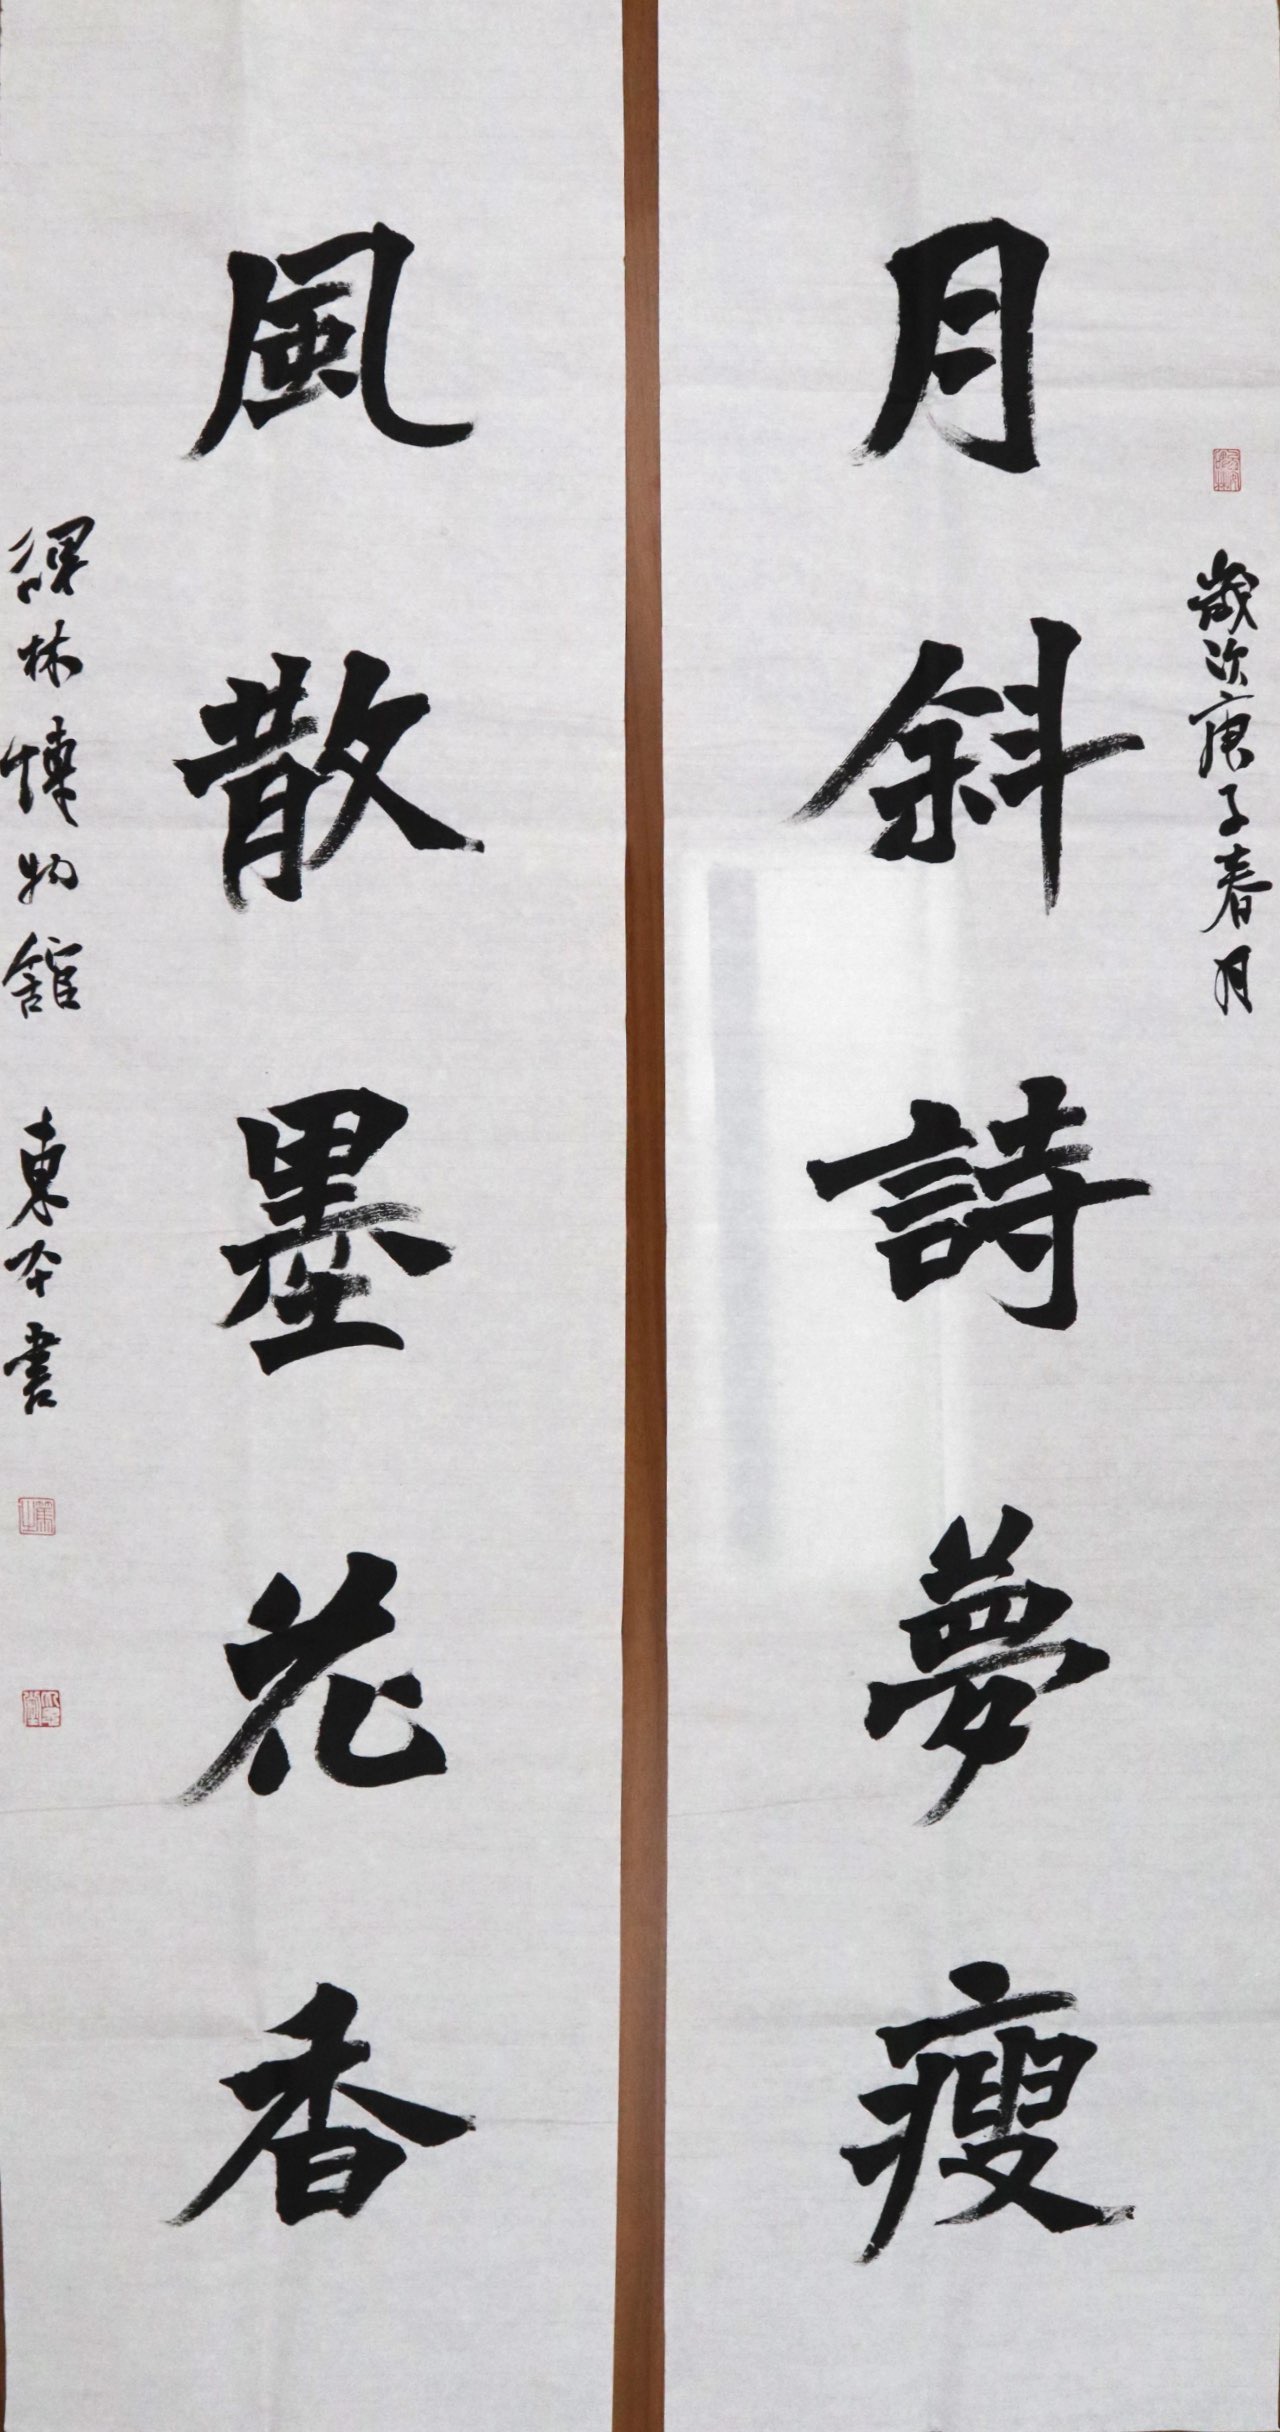 歲次庚子春月
月斜詩夢瘦
風散墨花香
林博物館 東本書